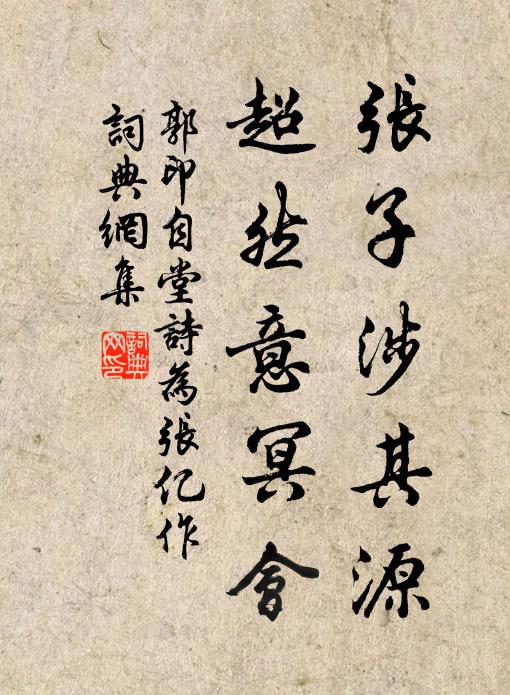 張子涉其源
超然意冥會
郭印自堂詩為張仁作
詞典網集
詞典網印